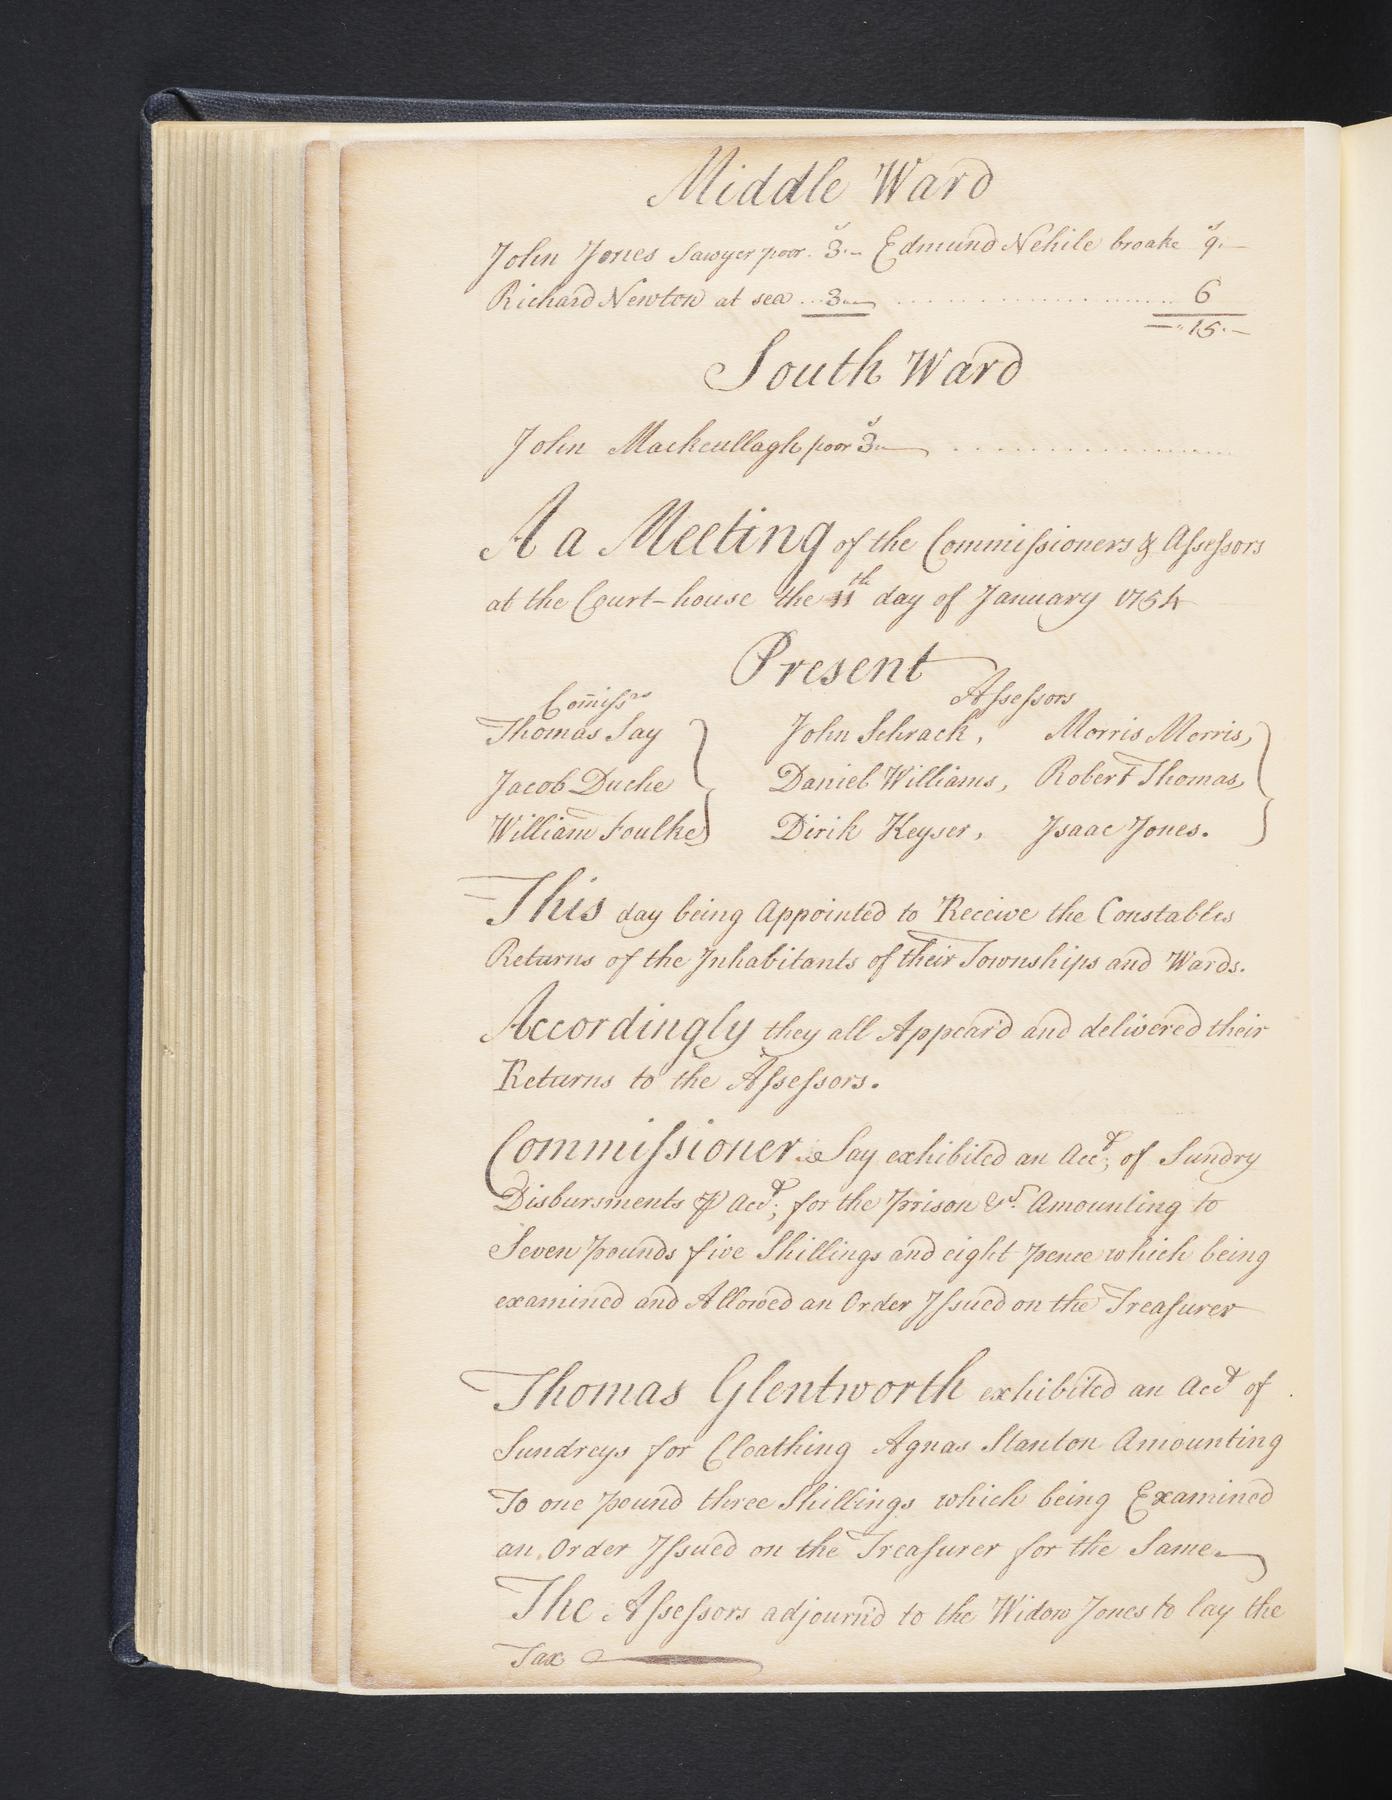 Middle Ward
John Jones Sawyer poor. 3.- Edmund Nehile broake 9.-
Richard Newton at sea ... 3 ........................ 6
-"15.-
South Ward
John Mackcullagh poor 3 ..................
A a Meeting of the Commiſsioners & Aſseſsors
at the Court-house the 11th day of January 1754
Present
Com̄iſsrs Aſseſsors
Thomas Say John Schrack, Morris Morris,
Jacob Duche Daniel Williams, Robert Thomas,
William Foulke Dirik Keyser, Isaac Jones.
This day being Appointed to Receive the Constables
Returns of the Inhabitants of their Townships and Wards.
Accordingly they all Appear'd and delivered their
Returns to the Aſseſsors.
Commiſsioner Say exhibited an Acct; of Sundry
Disbursments ⅌ Acct; for the Prison &c. Amounting to
Seven pounds five Shillings and eight pence which being
examined and Allowed an Order Iſsued on the Treaſurer
Thomas Glentworth exhibited an Acct of
Sundreys for Cloathing Agnas Stanton Amounting
To one pound three Shillings which being Examined
an Order Iſsued on the Treaſurer for the Same
The Aſseſsors adjourn'd to the Widow Jones to lay the
Tax